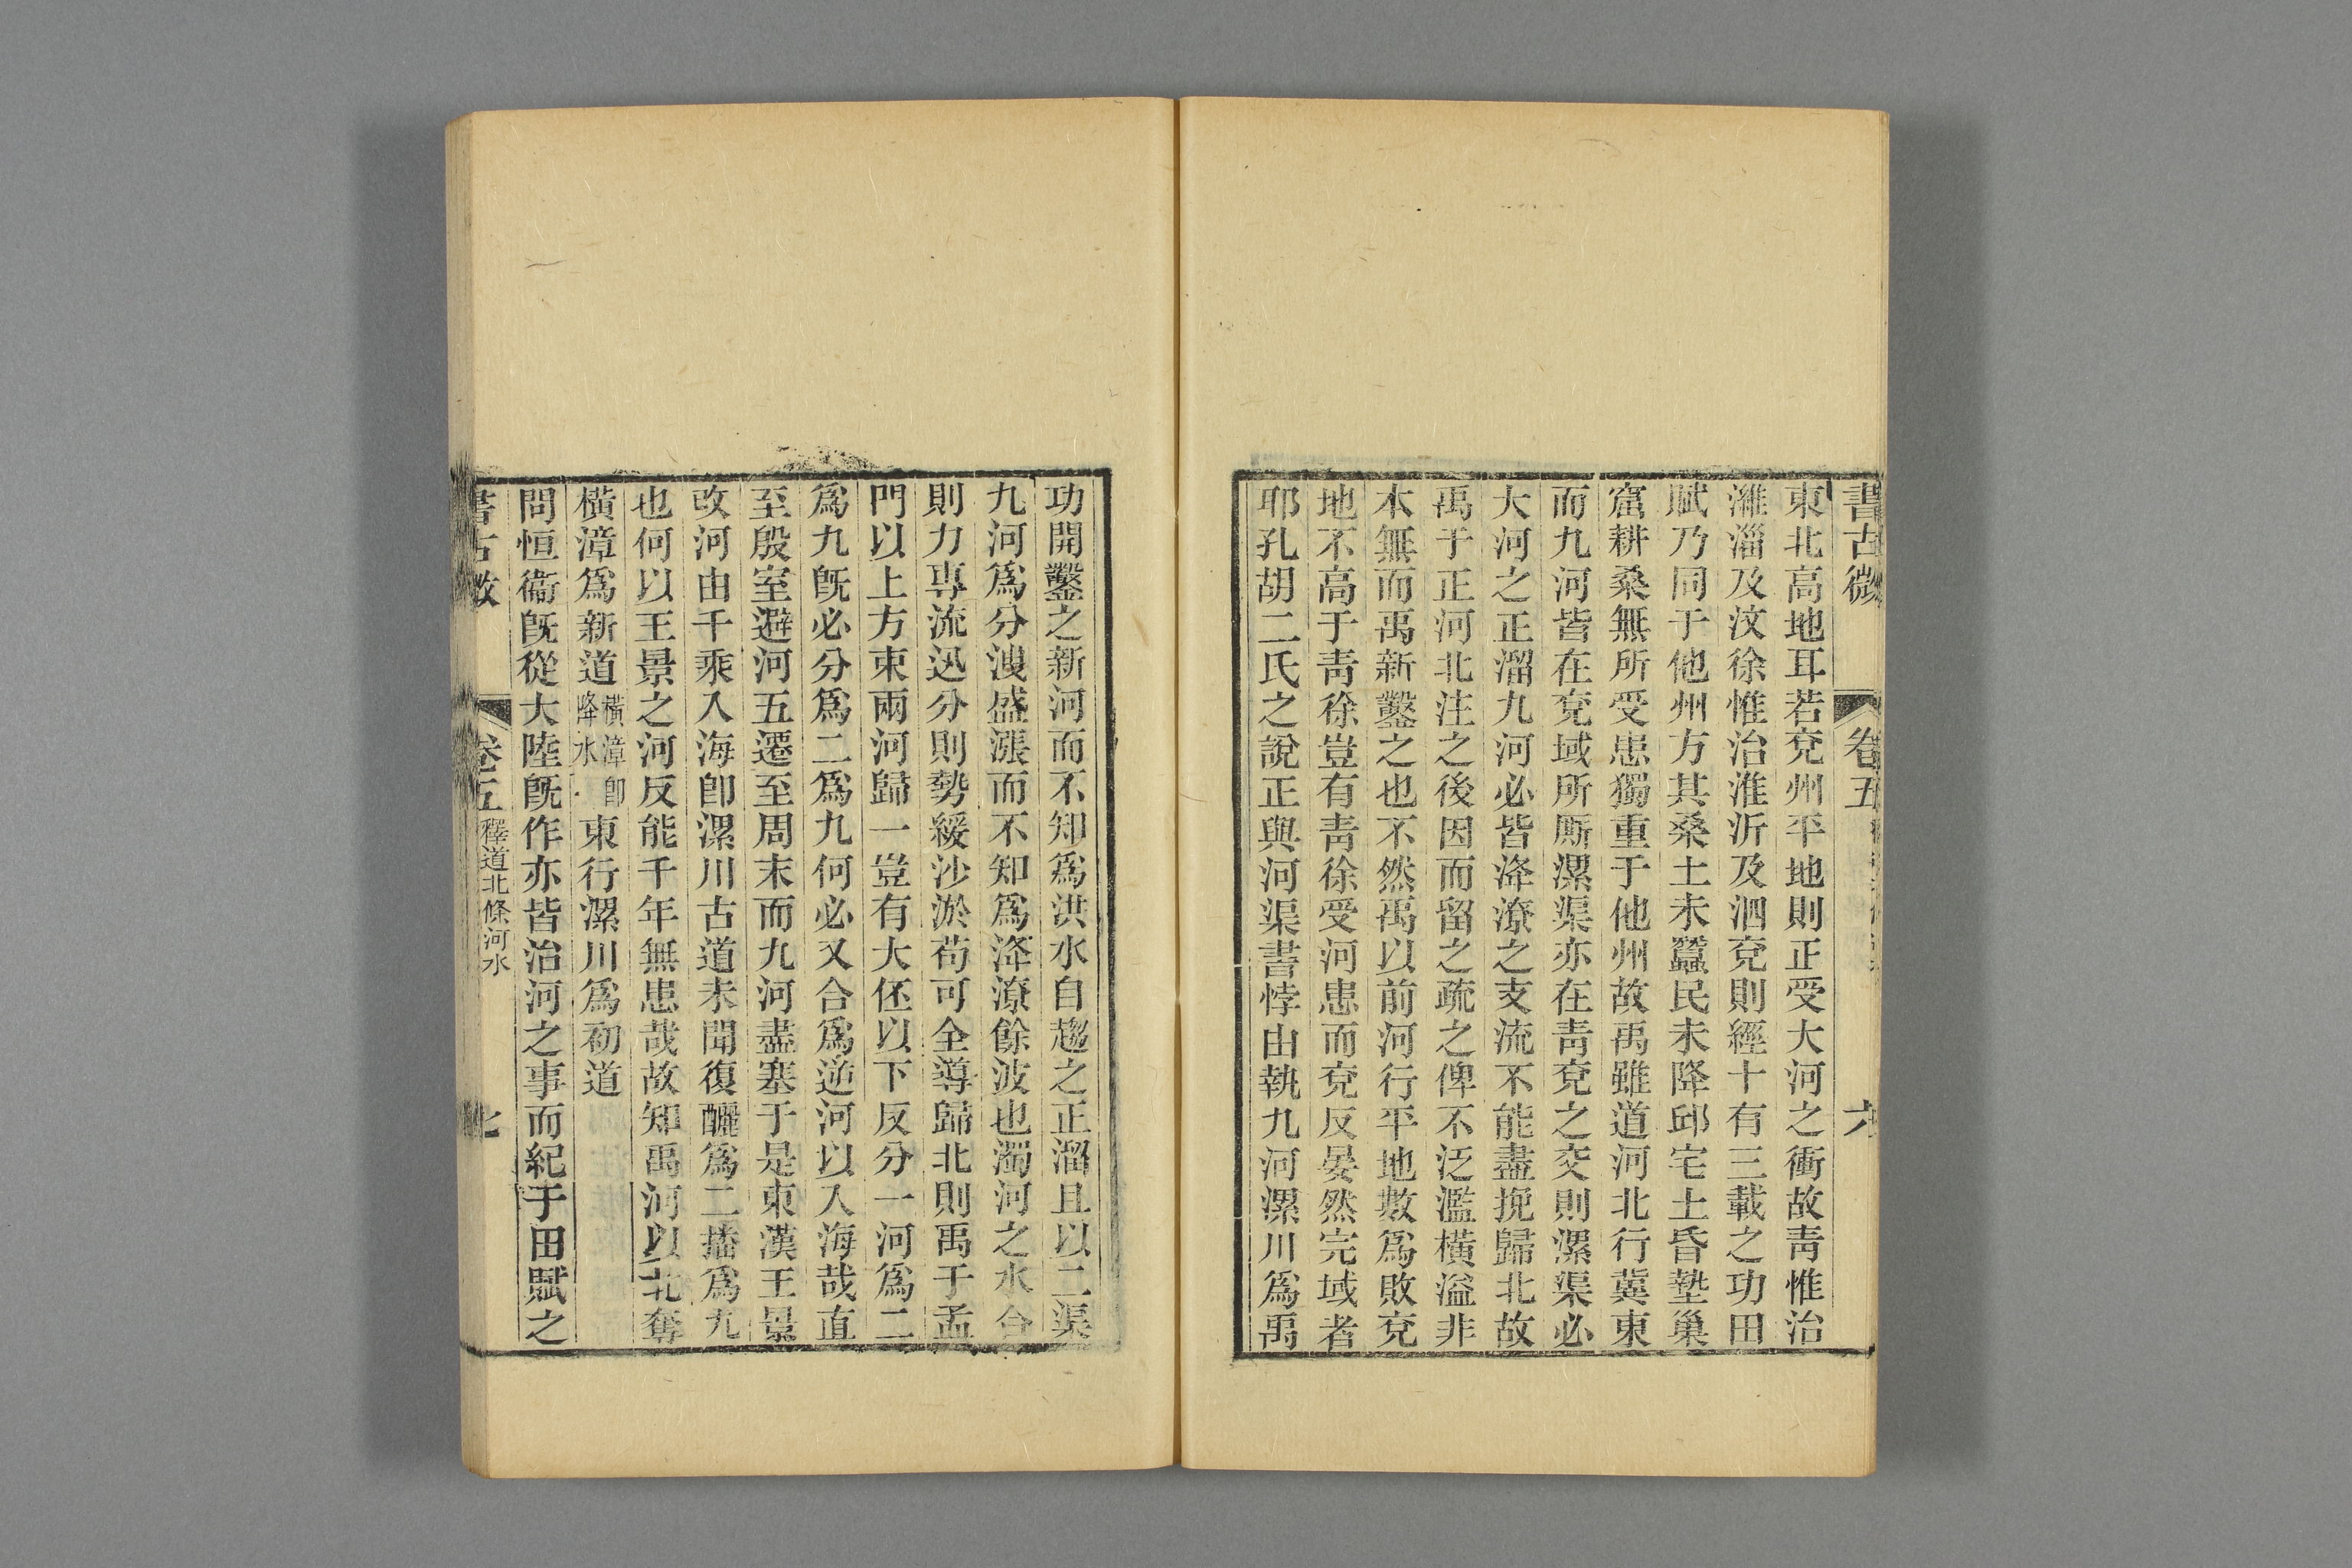 書古微 卷五 六
東北高地耳若兗州平地則正受大河之衝故靑惟治
濰淄及汶徐惟治淮沂及泗兗則經十有三載之功田
賦乃同于他州方其桑土未蠶民未降邱宅土昏墊巢
窟耕桑無所受患獨重于他州故禹雖道河北行冀東
而九河皆在兗域所厮漯渠亦在靑兗之交則漯渠必
大河之正溜九河必皆洚潦之支流不能盡挽歸北故
禹于正河北注之後因而留之疏之俾不泛濫橫溢非
本無而禹新鑿之也不然禹以前河行平地數爲敗兗
地不高于靑徐豈有靑徐受河患而兗反晏然完域者
耶孔胡二氏之說正與河渠書悖由執九河漯川爲禹
功開鑿之新河而不知爲洪水自趨之正溜且以二渠
九河爲分洩盛漲而不知爲洚潦餘波也濁河之水合
則力專流迅分則勢緩沙淤苟可全導歸北則禹于孟
門以上方束兩河歸一豈有大伾以下反分一河爲二
爲九旣必分爲二爲九何必又合爲逆河以入海哉直
至殷室避河五遷至周末而九河盡塞于是東漢王景
改河由千乘入海卽漯川古道未聞復釃爲二播爲九
也何以王景之河反能千年無患哉故知禹河以北奪
橫漳爲新道橫漳卽降水東行漯川爲初道
問恒衞旣從大陸旣作亦皆治河之事而紀于田賦之
書古微 卷五 釋道北條河水 七